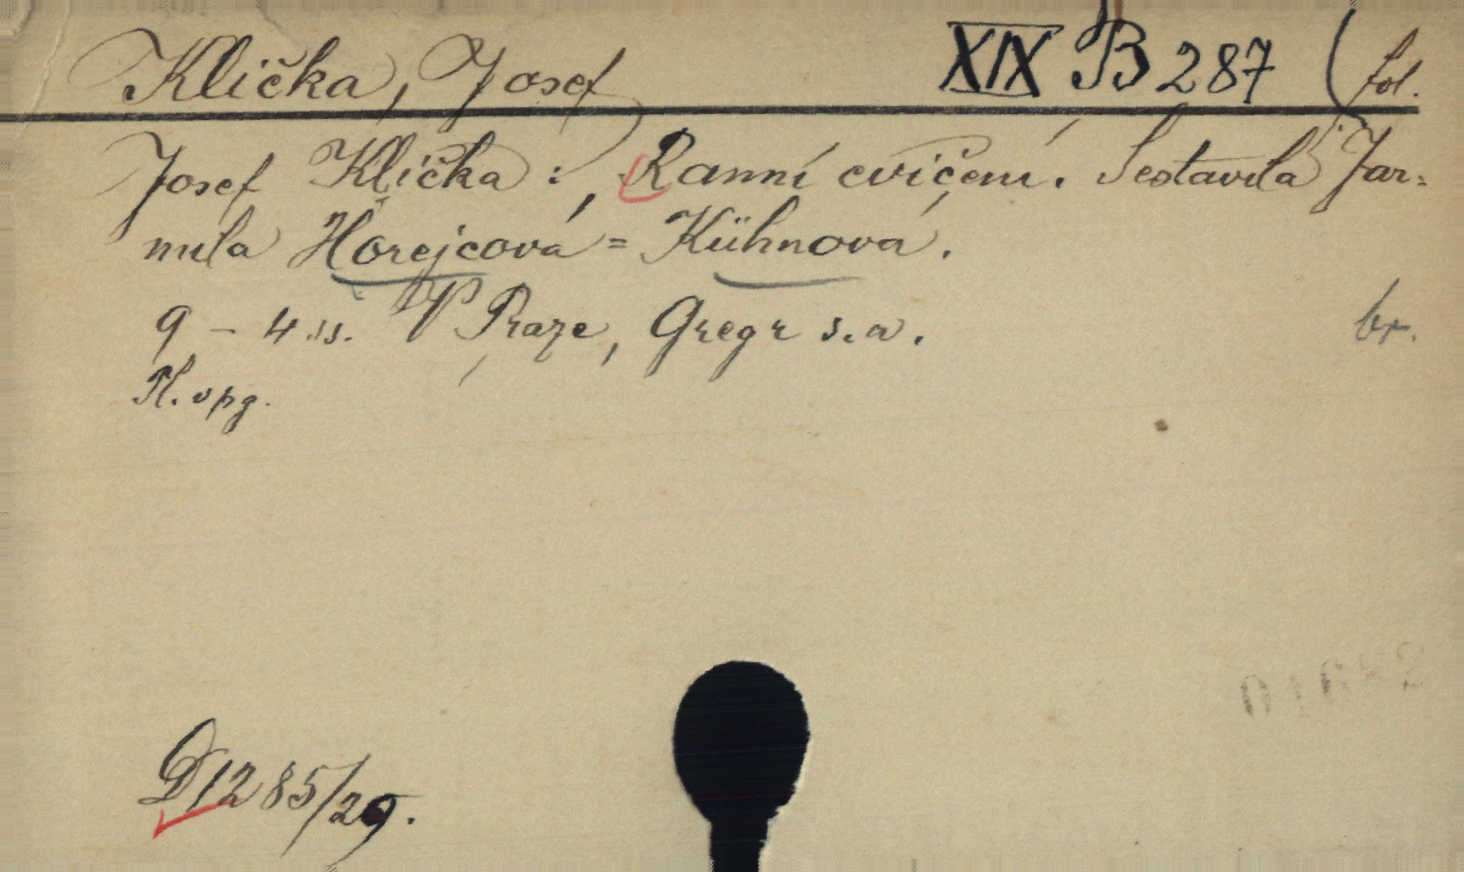 Klička, Josef XIX B 287 fol.
Josef Klička: Ranní cvičení. Sestavila Jar=
mila Hořejcová = Kühnová.
9 - 4 ss. V Praze, Gregr s.a. br.
Pl. vpg.
D1285/29.